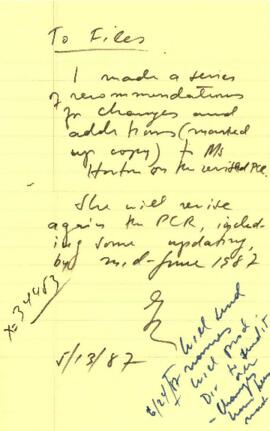 To Files
I made a series
of recommendations
for changes and
additions (marked
up copy) to Ms
Horton on the revised PCR.
She will revise
again the PCR, includ-
ing some updating,
by mid-June 1987
x-34483
5/13/87
6/24/87
will send
+ will send
Dir
to
over
- changes
made